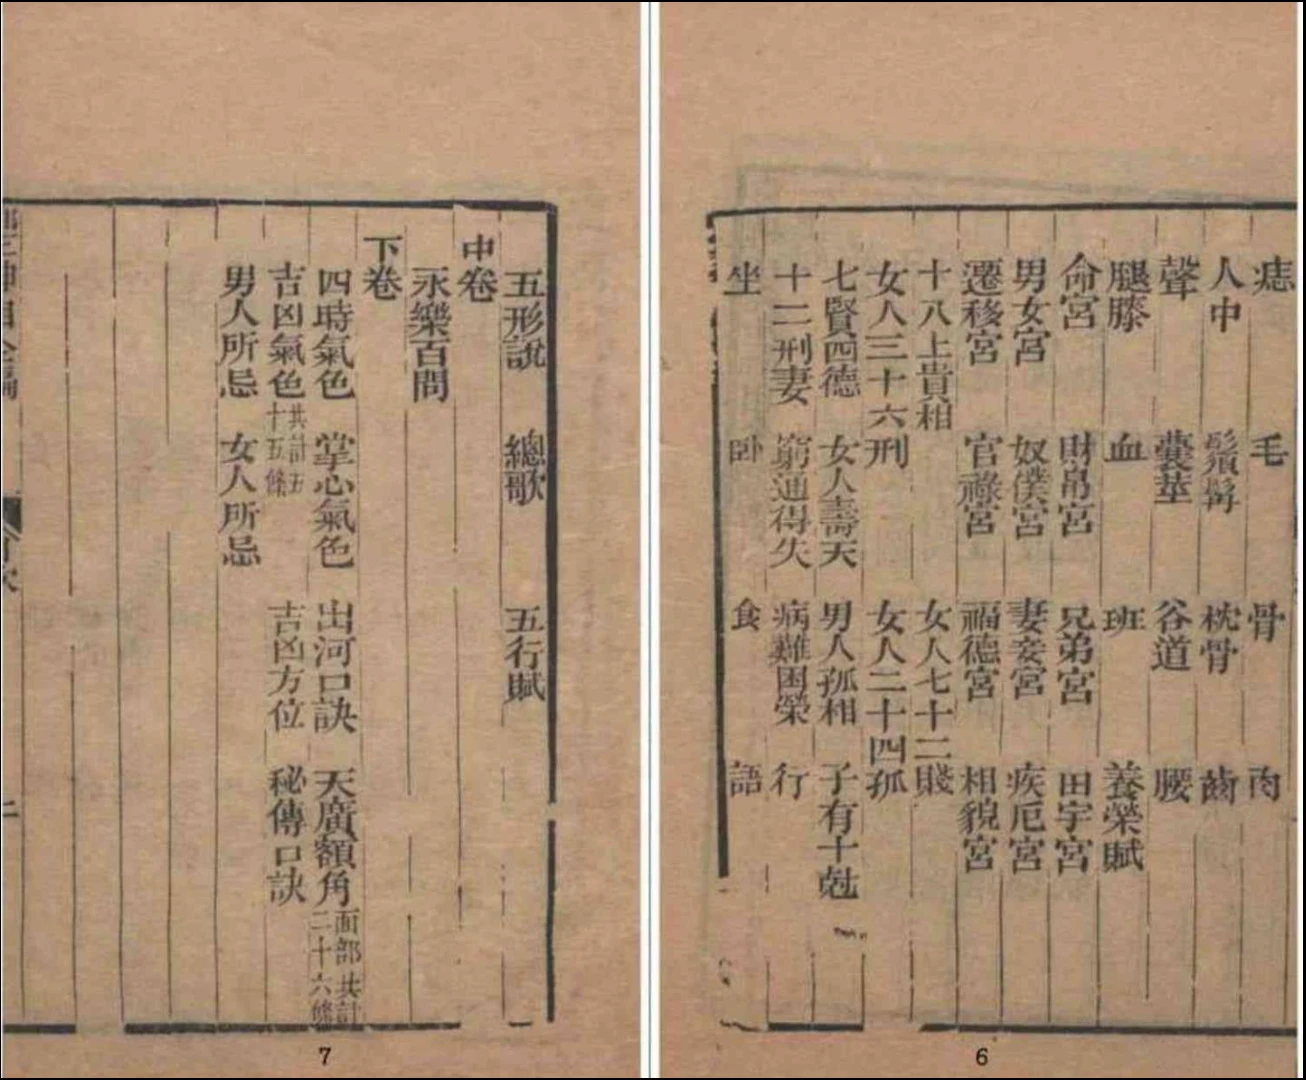 痣 毛 骨 肉
人中 鬚髯 枕骨 齒
聲 囊莖 谷道 腰
腿膝 血 班 養榮賦
命宮 財帛宮 兄弟宮 田宇宮
男女宮 奴僕宮 妻妾宮 疾厄宮
遷移宮 官祿宮 福德宮 相貌宮
十八上貴相 女人七十二賤
女人三十六刑 女人二十四孤
七賢四德 女人壽夭 男人孤相 子有十尅
十二刑妻 窮通得失 病難困榮 行
坐 卧 食 語
6
五形說 總歌 五行賦
中卷
永樂百問
下卷
四時氣色 掌心氣色 出河口訣 天廣額角 面部共計二十六條
吉凶氣色 共計五十五條 吉凶方位 秘傳口訣
男人所忌 女人所忌
7